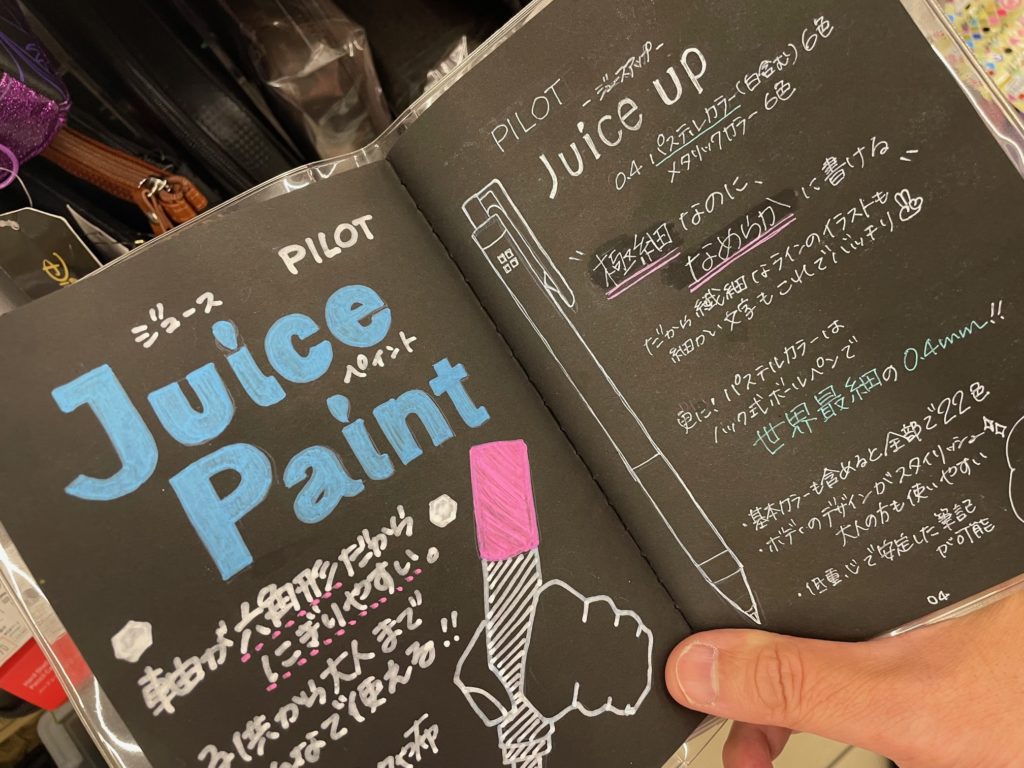 PILOT
ジュース
Juice
ペイント
Paint
軸が六角形だから
にぎりやすい。
子供から大人まで
なで使える!!
布
PILOT
-ジュースアップ-
Juice up
04 パステルカラー(白含む)6色
メタリックカラー 6色
"極細なのに、
なめらかに書ける"
だから繊細なラインのイラストも
細かい文字もこれでバッチリ
更に!パステルカラーは
ノック式ボールペンで
世界最細の0.4mm!!
・基本カラーも含めると全部で22色
・ボディのデザインがスタイリッシュ
大人の方も使いやすい
・低重心で安定した筆記
が可能
04